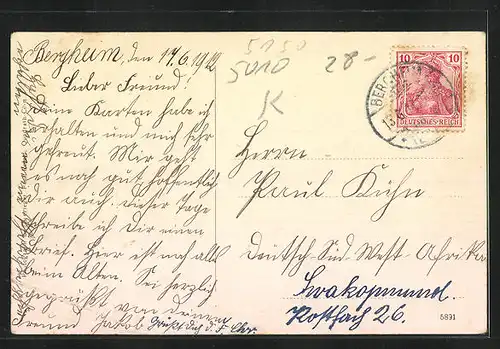 Bergheim, den 14.6.1912
Lieber Freund!
Deine Karten habe ich
erhalten und mich sehr
gefreut. Mir geht
es noch gut hoffentlich
dir auch. Dieser Tage
schreibe ich dir einen
Brief. Hier ist noch alles
beim Alten. Sei herzlich
gegrüßt von deinem
Freund Jakob
5150
5010
28-
K
10 10
DEUTSCHES REICH
BERGHEIM
Herrn
Paul Kühn
Deutsch-Süd-West-Afrika
Swakopmund.
Postfach 26.
5891